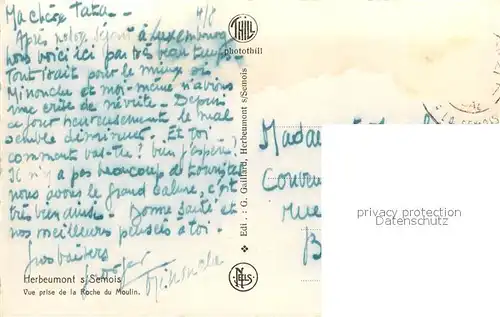 Ma chère Tata - 4/8
Après notre séjour à Luxembourg
nous voici ici par très beau temps.
Tout irait pour le mieux si
Minouche et moi-même n'avions
une crise de névrite - Depuis
ce jour heureusement le mal
semble diminuer. Et toi
comment vas-tu? bien j'espère!
Il n'y a pas beaucoup de touristes
nous avons le grand calme, c'est
très bien ainsi. Bonne santé et
nos meilleurs pensées à toi -
Gros baisers
Herbeumont s/Semois
Vue prise de la Roche du Moulin.
THILL
photothill
Edit. : G. Gaillard, Herbeumont s/Semois
NELS
Madam
Couven
rue
B
privacy protection
Datenschutz